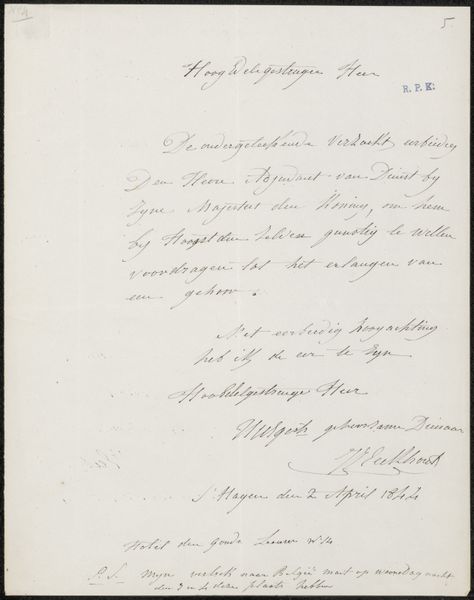 5
Hoog Edelgestrenge Heer
R. P. K.
De ondergeteekende verzoekt eerbiedig
Den Heere Adjudant van Dienst by
Zyne Majesteit den Koning, om hem
by Hoogst den zelven gunstig te willen
voordragen tot het erlangen van
een gehoor.
Met eerbiedig hoogachting
heb ik de eer te zyn
HoogEdelgestrenge Heer
UwEgestr gehoorzame Dienaar
JJ Eeckhout
s'Hagen den 2 April 1844
Hotel den goude Leeuw No 14
P. S. Myn vertrek naar België moet op woensdag nacht
den 3 n 4 dezer plaats hebben